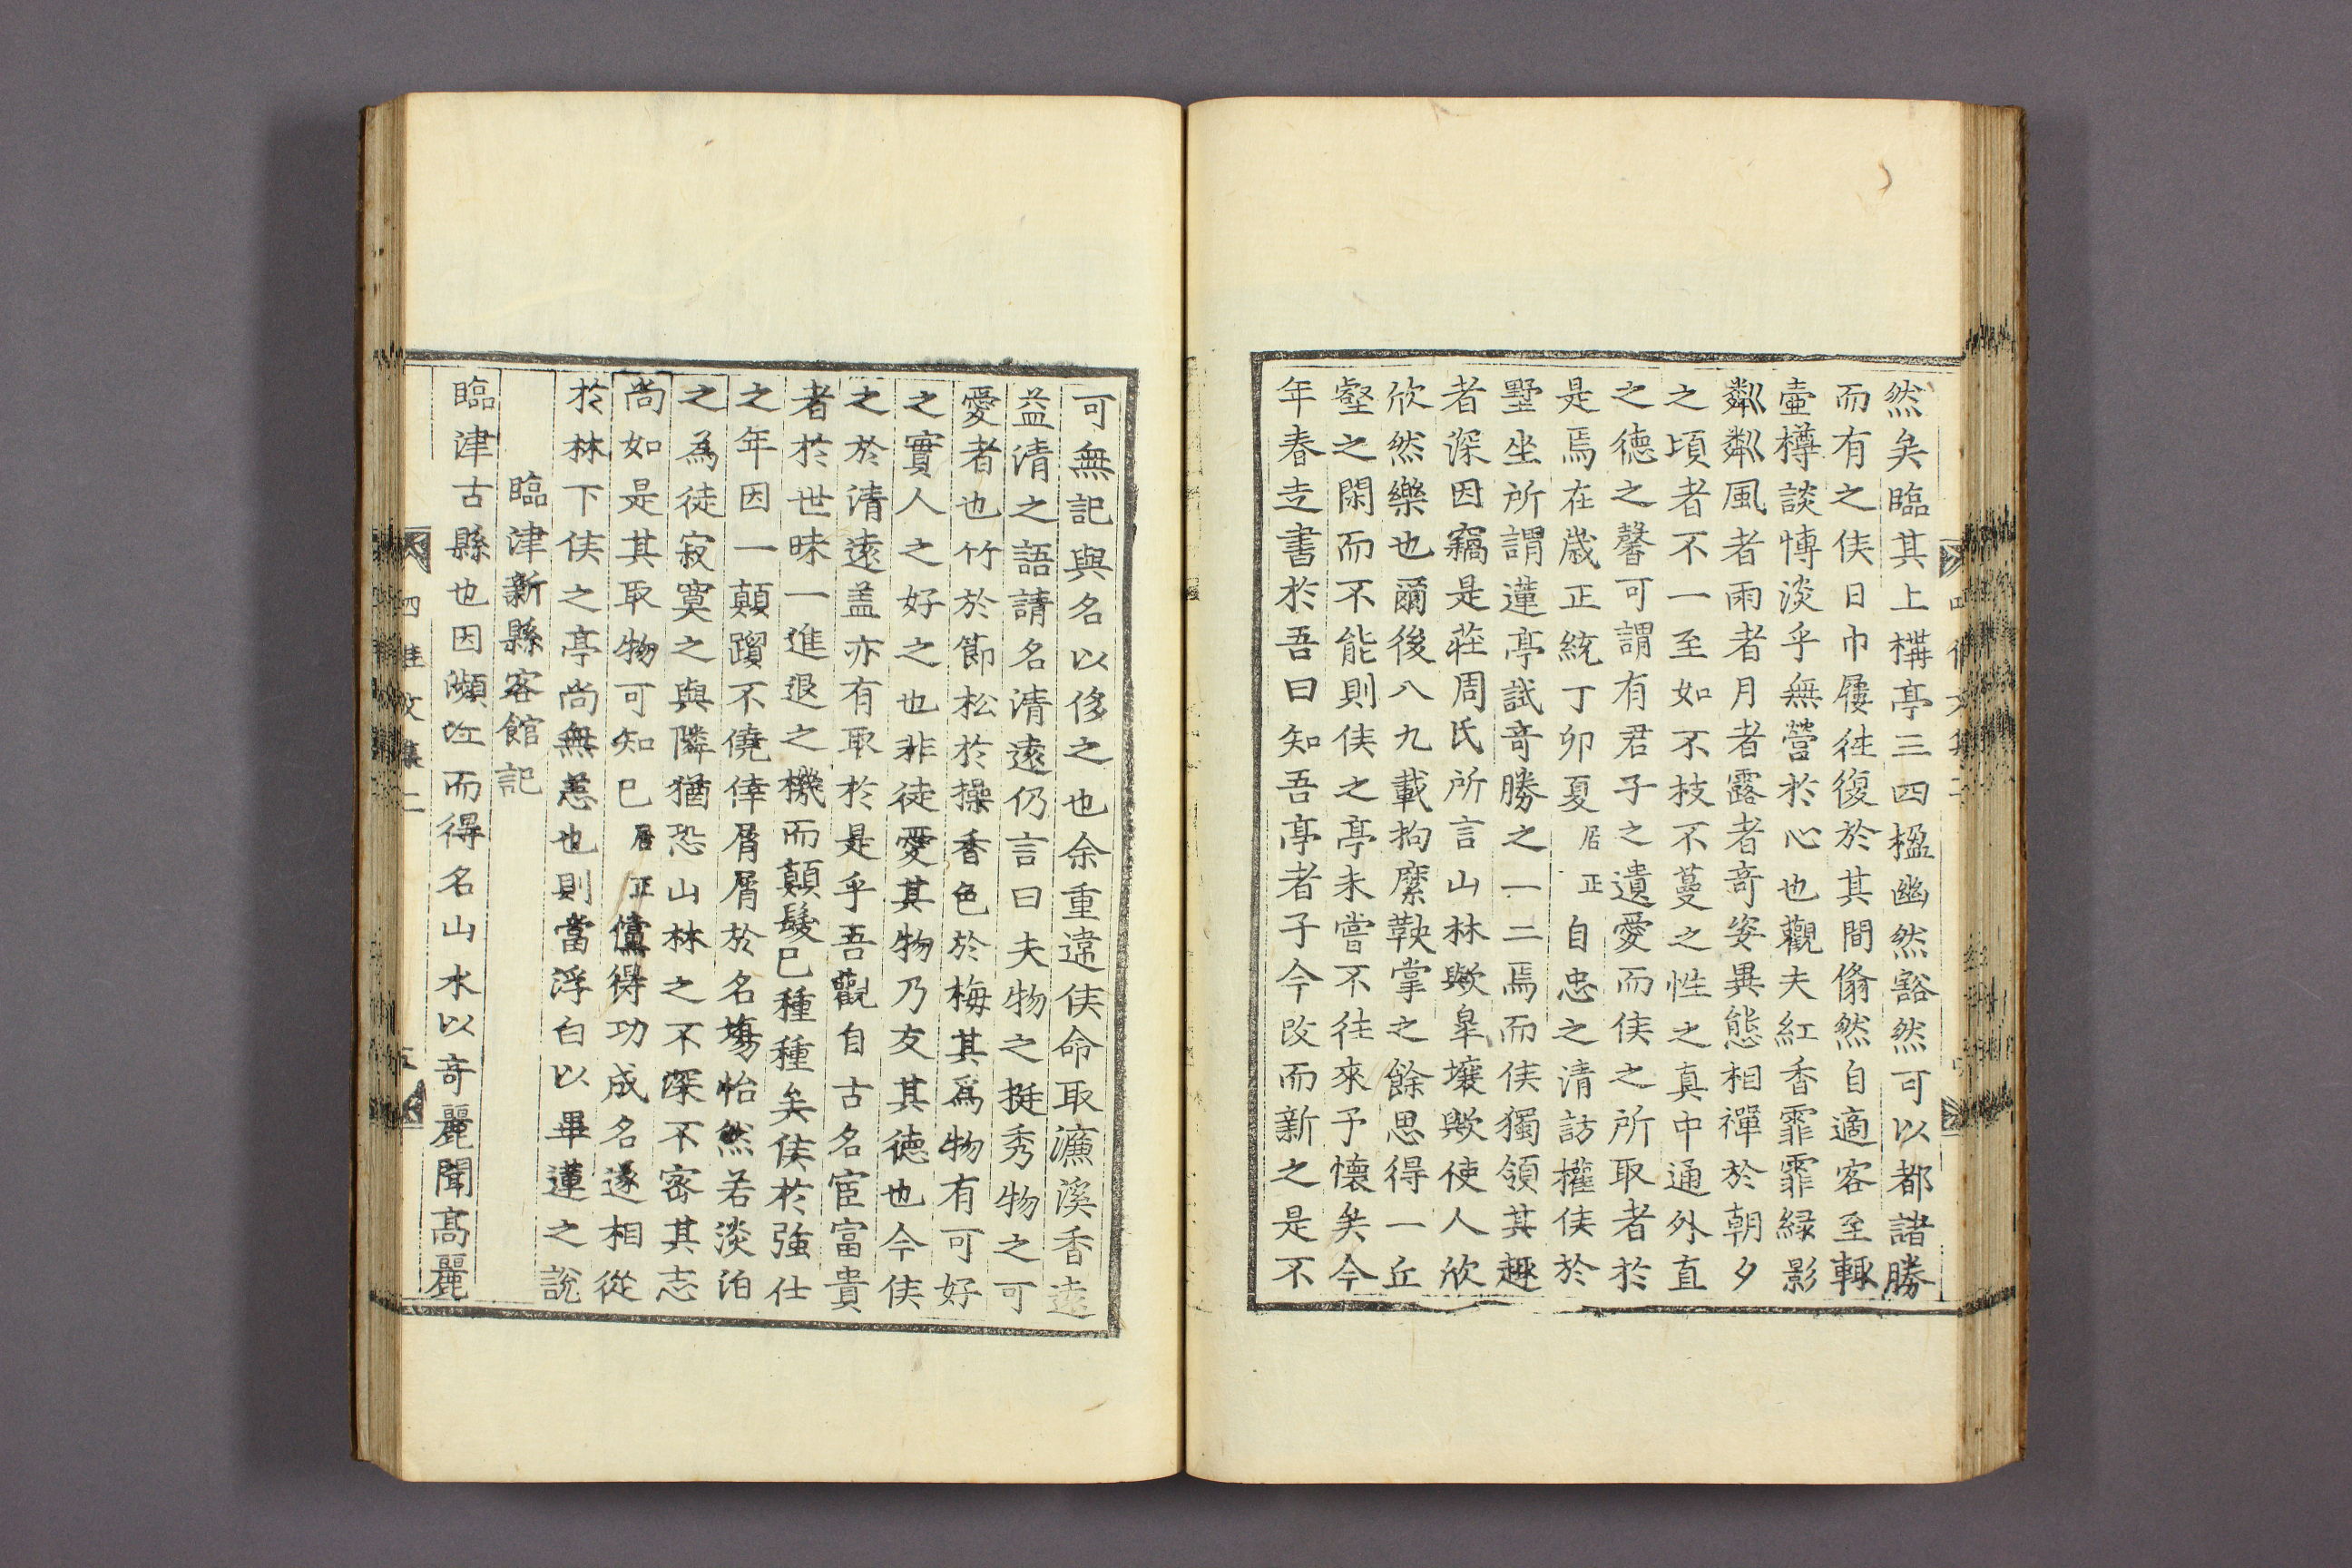 然矣臨其上構亭三四楹幽然豁然可以都諸勝
而有之侯日巾屨徃復於其間翛然自適客至輙
壷樽談愽淡乎無營於心也觀夫紅香霏霏緑影
粼粼風者雨者月者露者竒姿異態相禪於朝夕
之頃者不一至如不枝不蔓之性之真中通外直
之德之馨可謂有君子之遺愛而侯之所取者於
是焉在歲正統丁卯夏居正自忠之清訪權侯於
墅坐所謂蓮亭試竒勝之一二焉而侯獨領其趣
者深因竊是莊周氏所言山林歟皐壤歟使人欣
欣然樂也爾後八九載拘縻鞅掌之餘思得一丘
壑之閑而不能則侯之亭未嘗不往來予懷矣今
年春走書於吾曰知吾亭者子今改而新之是不
可無記與名以侈之也余重違侯命取濂溪香遠
益清之語請名清遠仍言曰夫物之挺秀物之可
愛者也竹於節松於操香色於梅其爲物有可好
之實人之好之也非徒愛其物乃友其德也今侯
之於清遠盖亦有取於是乎吾觀自古名宦富貴
者於世味一進退之機而顛髮已種種矣侯於強仕
之年因一顛躓不僥倖屑屑於名塲怡然若淡泊
之為徒寂寞之與隣猶恐山林之不深不密其志
尚如是其取物可知已居正儻得功成名遂相從
於林下侯之亭尚無恙也則當浮白以畢蓮之說
臨津新縣客館記
臨津古縣也因瀕江而得名山水以竒麗聞高麗
四佳文集二